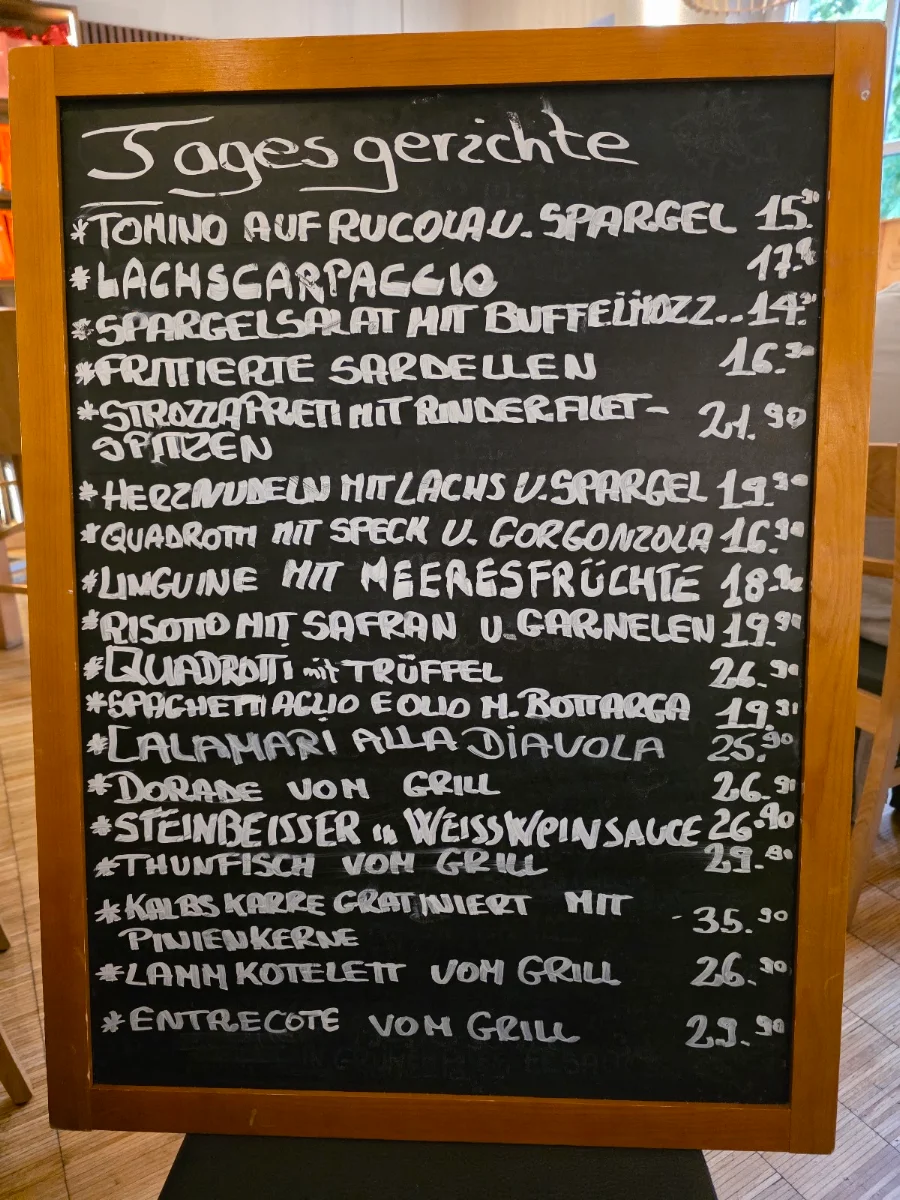 Tagesgerichte
*TOMINO AUF RUCOLA U. SPARGEL 15.90
*LACHSCARPACCIO 17.90
*SPARGELSALAT MIT BUFFELMOZZ.. 14.90
*FRITTIERTE SARDELLEN 16.90
*STROZZAPRETI MIT RINDERFILET- 21.90
SPITZEN
*HERZNUDELN MIT LACHS U. SPARGEL 19.90
*QUADROTTI MIT SPECK U. GORGONZOLA 16.90
*LINGUINE MIT MEERESFRÜCHTE 18.90
*RISOTTO MIT SAFRAN U. GARNELEN 19.90
*QUADROTTI mit TRÜFFEL 26.90
*SPAGHETTI AGLIO E OLIO M. BOTTARGA 19.90
*CALAMARI ALLA DIAVOLA 25.90
*DORADE VOM GRILL 26.90
*STEINBEISSER in WEISSWEINSAUCE 26.90
*THUNFISCH VOM GRILL 29.90
*KALBSKARRE GRATINIERT MIT - 35.90
PINIENKERNE
*LAMMKOTELETT VOM GRILL 26.90
*ENTRECOTE VOM GRILL 29.90